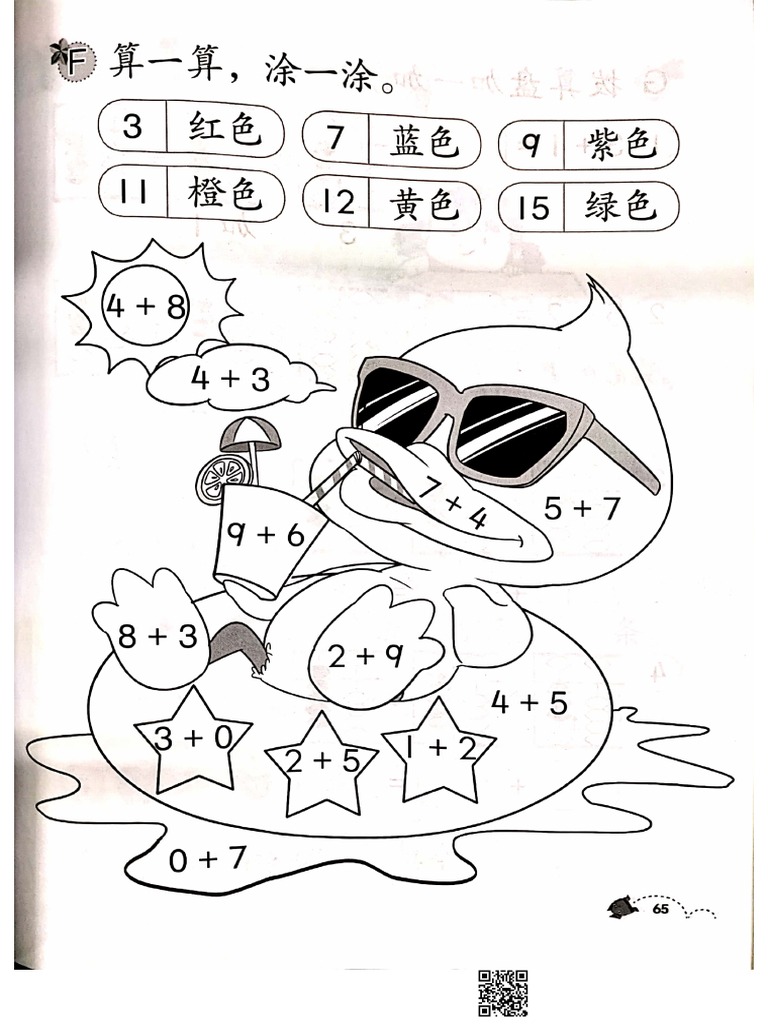 F 算一算，涂一涂。
3 红色 7 蓝色 9 紫色
11 橙色 12 黄色 15 绿色
4 + 8
4 + 3
7 + 4
5 + 7
9 + 6
8 + 3
2 + 9
4 + 5
3 + 0
2 + 5
1 + 2
0 + 7
65